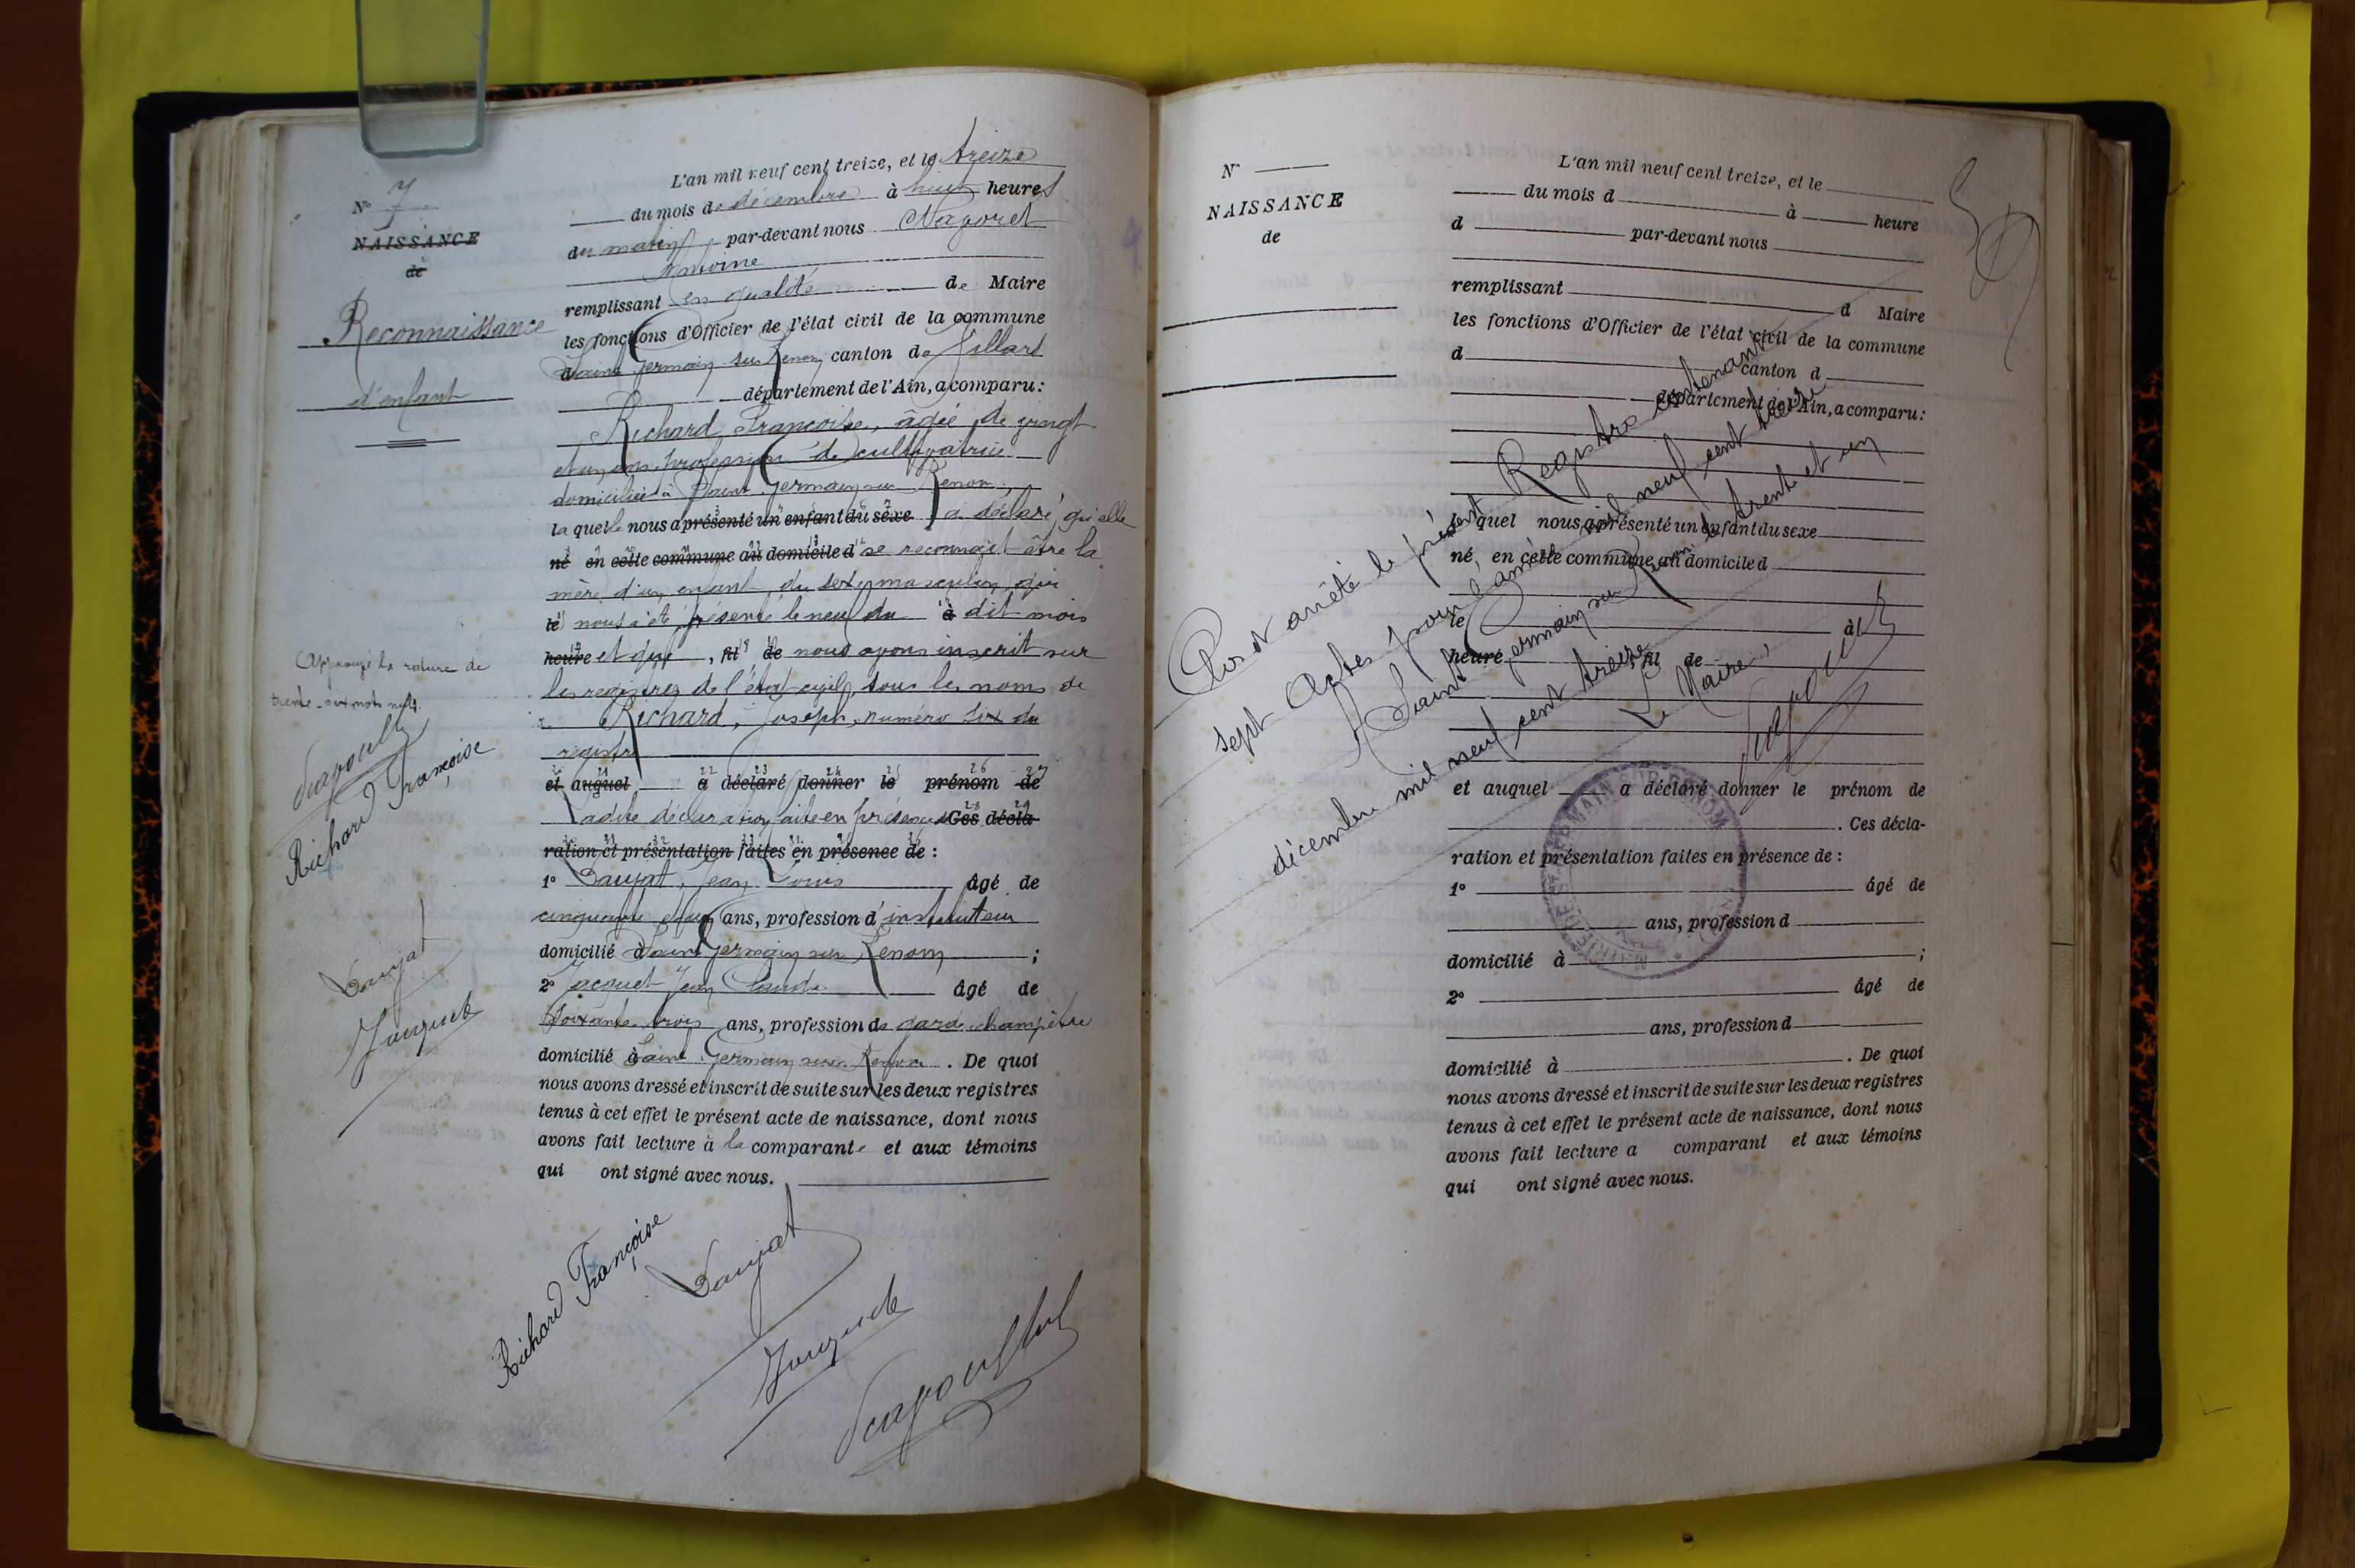 N° 7
NAISSANCE
de
Reconnaissance
d'enfant
L'an mil neuf cent treize, et le treize
du mois de décembre à huit heures
du matin, par-devant nous
Antoine
remplissant en qualité de Maire
les fonctions d'Officier de l'état civil de la commune
d Saint Germain sur Renon canton de Villars
département de l'Ain, a comparu :
Richard Françoise, âgée de vingt
et un ans profession de cultivatrice
domiciliée à Saint Germain sur Renon,
la quelle nous a présenté un enfant du sexe a déclaré qu'elle
né en cette commune au domicile d se reconnaît être la
mère d'un enfant du sexe masculin qui
le nous a été présenté le neuf du à dit mois
heure et que , fil de nous avons inscrit sur
les registres de l'état civil sous les noms de
Richard, Joseph, numéro six du
registre
et auquel a déclaré donner le prénom de
Ladite déclaration faite en présence de Ces décla-
ration et présentation faites en présence de :
1° Jean Louis âgé de
cinquante deux ans, profession d'instituteur
domicilié à Saint Germain sur Renon ;
2° Jacquet Jean Claude âgé de
soixante trois ans, profession de garde champêtre
domicilié à Saint Germain sur Renon . De quoi
nous avons dressé et inscrit de suite sur les deux registres
tenus à cet effet le présent acte de naissance, dont nous
avons fait lecture à la comparante et aux témoins
qui ont signé avec nous.
Approuvé la rature de
trente-six mots nuls.
Richard Françoise
Jacquet
Richard Françoise
Jacquet
N°
NAISSANCE
de
L'an mil neuf cent treize, et le
du mois d à heure
d par-devant nous
remplissant d Maire
les fonctions d'Officier de l'état civil de la commune
d canton d
département de l'Ain, a comparu :
le quel nous a présenté un enfant du sexe
né, en cette commune au domicile d
le à
heure , fil de
et auquel a déclaré donner le prénom de
. Ces décla-
ration et présentation faites en présence de :
1° âgé de
ans, profession d
domicilié à ;
2° âgé de
ans, profession d
domicilié à . De quoi
nous avons dressé et inscrit de suite sur les deux registres
tenus à cet effet le présent acte de naissance, dont nous
avons fait lecture a comparant et aux témoins
qui ont signé avec nous.
Clos et arrêté le présent Registre contenant
sept Actes pour l'année mil neuf cent treize
Saint Germain sur Renon le trente et un
décembre mil neuf cent treize
Le Maire,
MAIRIE DE ST GERMAIN SUR RENOM